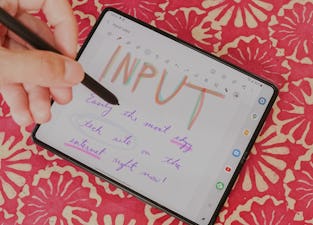 INPUT
Easily the most dope
tech site on the
internet right now!